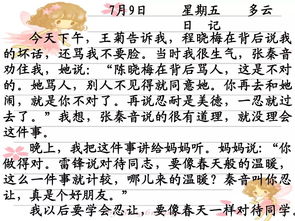 7月9日 星期五 多云
日 记
今天下午，王菊告诉我，程晓梅在背后说我
的坏话，还骂我不要脸。当时我很生气，张秦音
劝住我，她说：“陈晓梅在背后骂人，这是不对
的。她骂人，别人不见得就同意她。你再去和她
闹，就是你不对了。再说忍耐是美德，一忍就过
去了。”我想，张秦音说的很有道理，就没理会
这件事。
晚上，我把这件事讲给妈妈听。妈妈说：“你
做得对。雷锋说对待同志，要像春天般的温暖，
这么一件事就计较，哪儿来的温暖？秦音叫你忍
让，真是个好朋友。”
我以后要学会忍让，要像春天一样对待同学